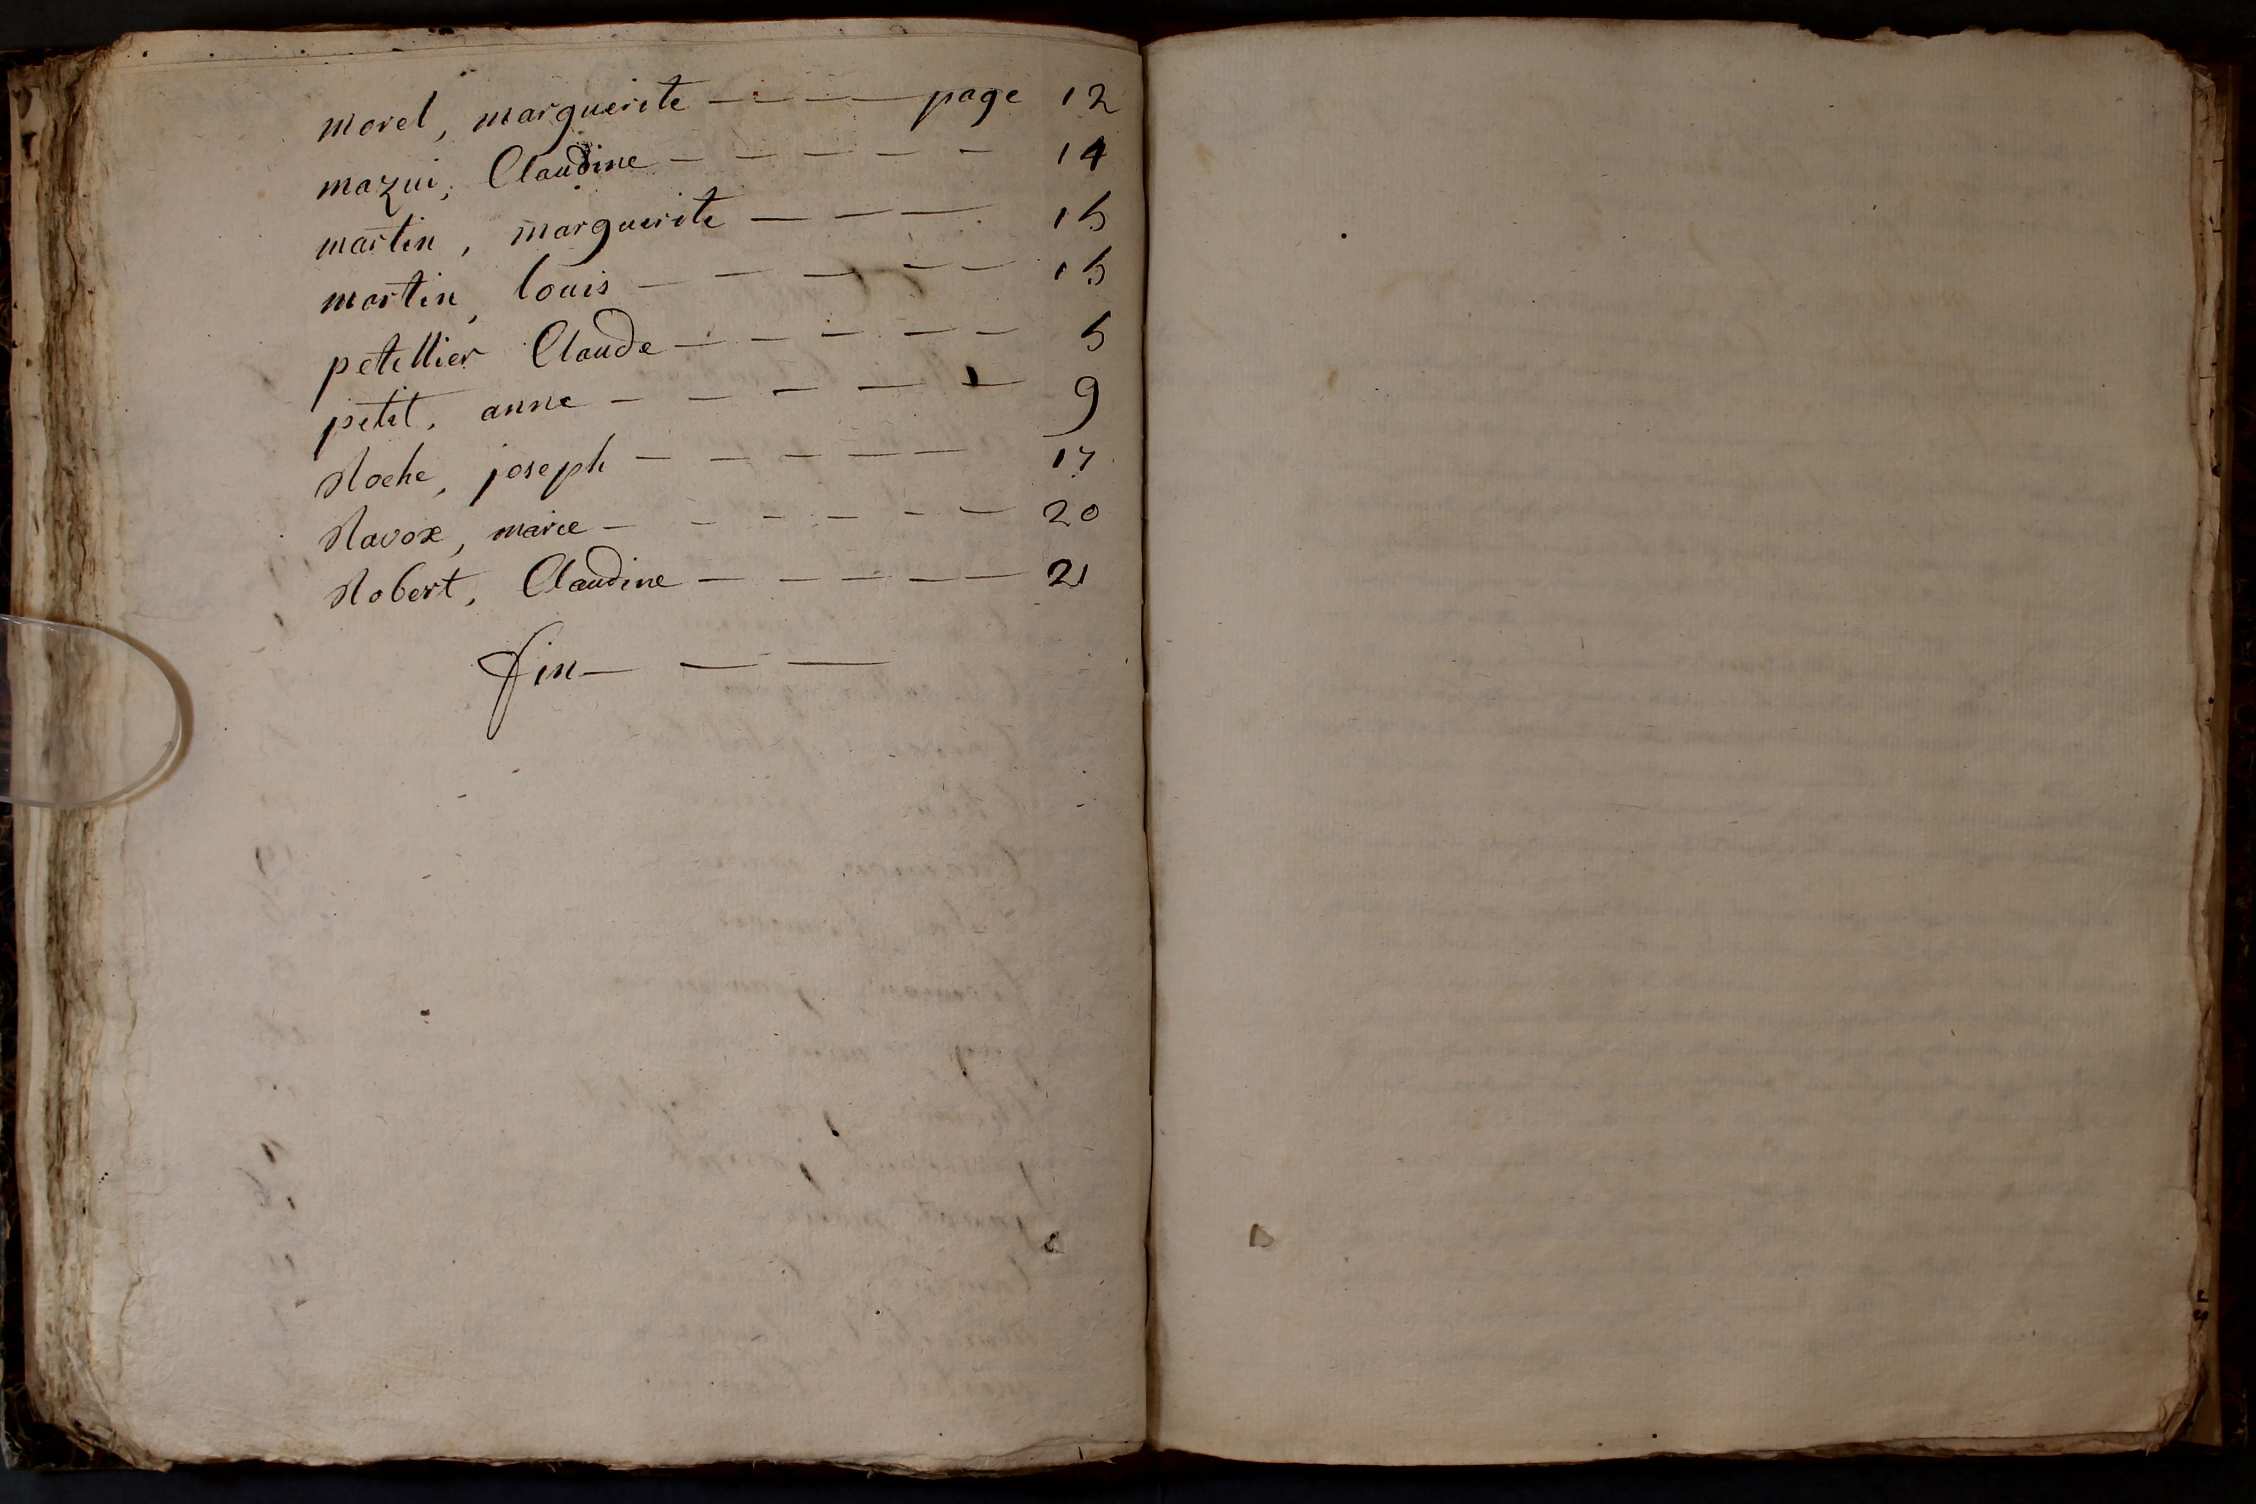 morel, marguerite — — — page 12
mazui, Claudine — — — — — 14
martin, marguerite — — — 15
martin, louis — — — — — 15
petellier Claude — — — — — 5
petit, anne — — — — — 9
Roche, joseph — — — — — 17
Ravox, marie — — — — — — 20
Robert, Claudine — — — — — 21
fin — — —